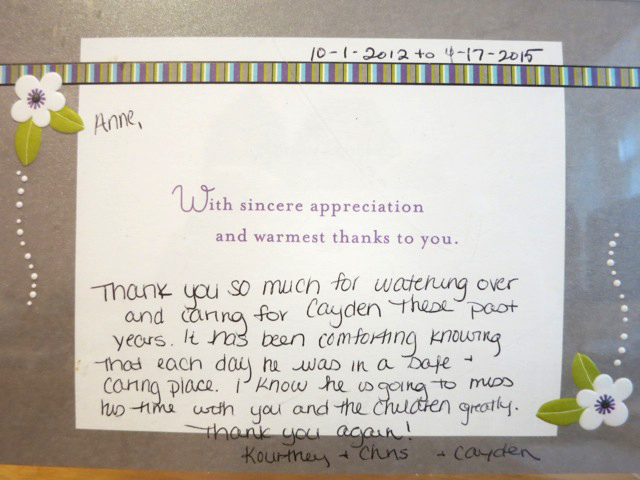 10-1-2012 to 4-17-2015
Anne,
With sincere appreciation
and warmest thanks to you.
Thank you so much for watching over
and caring for Cayden these past
years. It has been comforting knowing
that each day he was in a safe +
caring place. I know he is going to miss
his time with you and the children greatly.
Thank you again!
Kourtney + Chris + Cayden